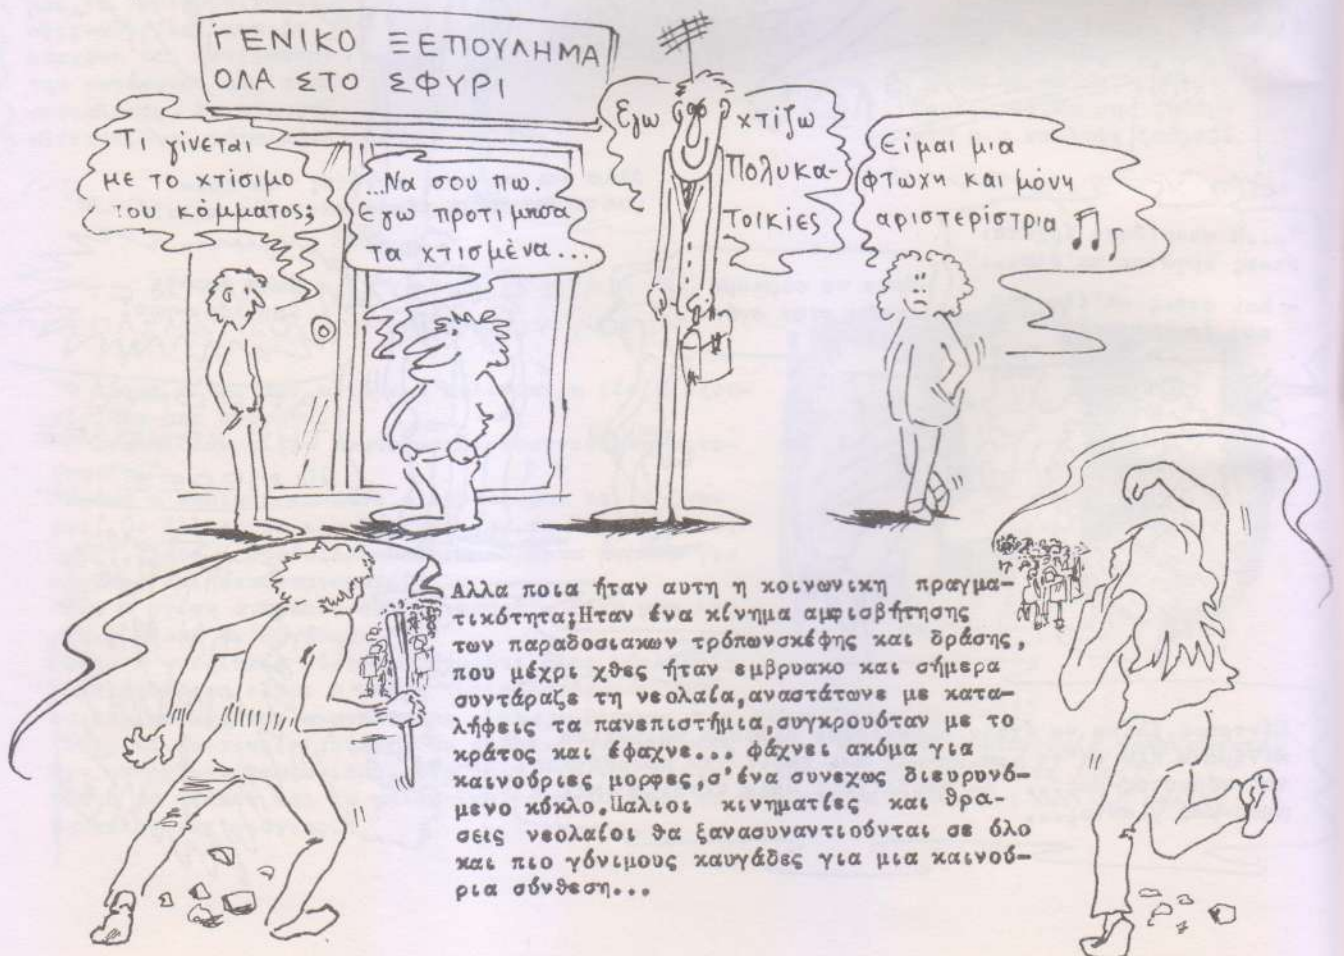 ΓΕΝΙΚΟ ΞΕΠΟΥΛΗΜΑ
ΟΛΑ ΣΤΟ ΣΦΥΡΙ
Τι γίνεται
με το χτίσιμο
του κόμματος;
...Να σου πω.
Εγω προτιμησα
τα χτισμένα...
Εγω χτίζω
Πολυκα-
τοικίες
Είμαι μια
φτωχη και μόνη
αριστερίστρια
Αλλα ποια ήταν αυτη η κοινωνικη πραγμα-
τικότητα;Ηταν ένα κίνημα αμφισβήτησης
των παραδοσιακων τρόπωνσκέψης και δράσης,
που μέχρι χθες ήταν εμβρυακο και σήμερα
συντάραζε τη νεολαία,αναστάτωνε με κατα-
λήψεις τα πανεπιστήμια,συγκρουόταν με το
κράτος και έψαχνε... ψάχνει ακόμα για
καινούριες μορφες,σ'ένα συνεχως διευρυνό-
μενο κύκλο.Παλιοι κινηματίες και θρα-
σεις νεολαίοι θα ξανασυναντιούνται σε όλο
και πιο γόνιμους καυγάδες για μια καινού-
ρια σύνθεση...